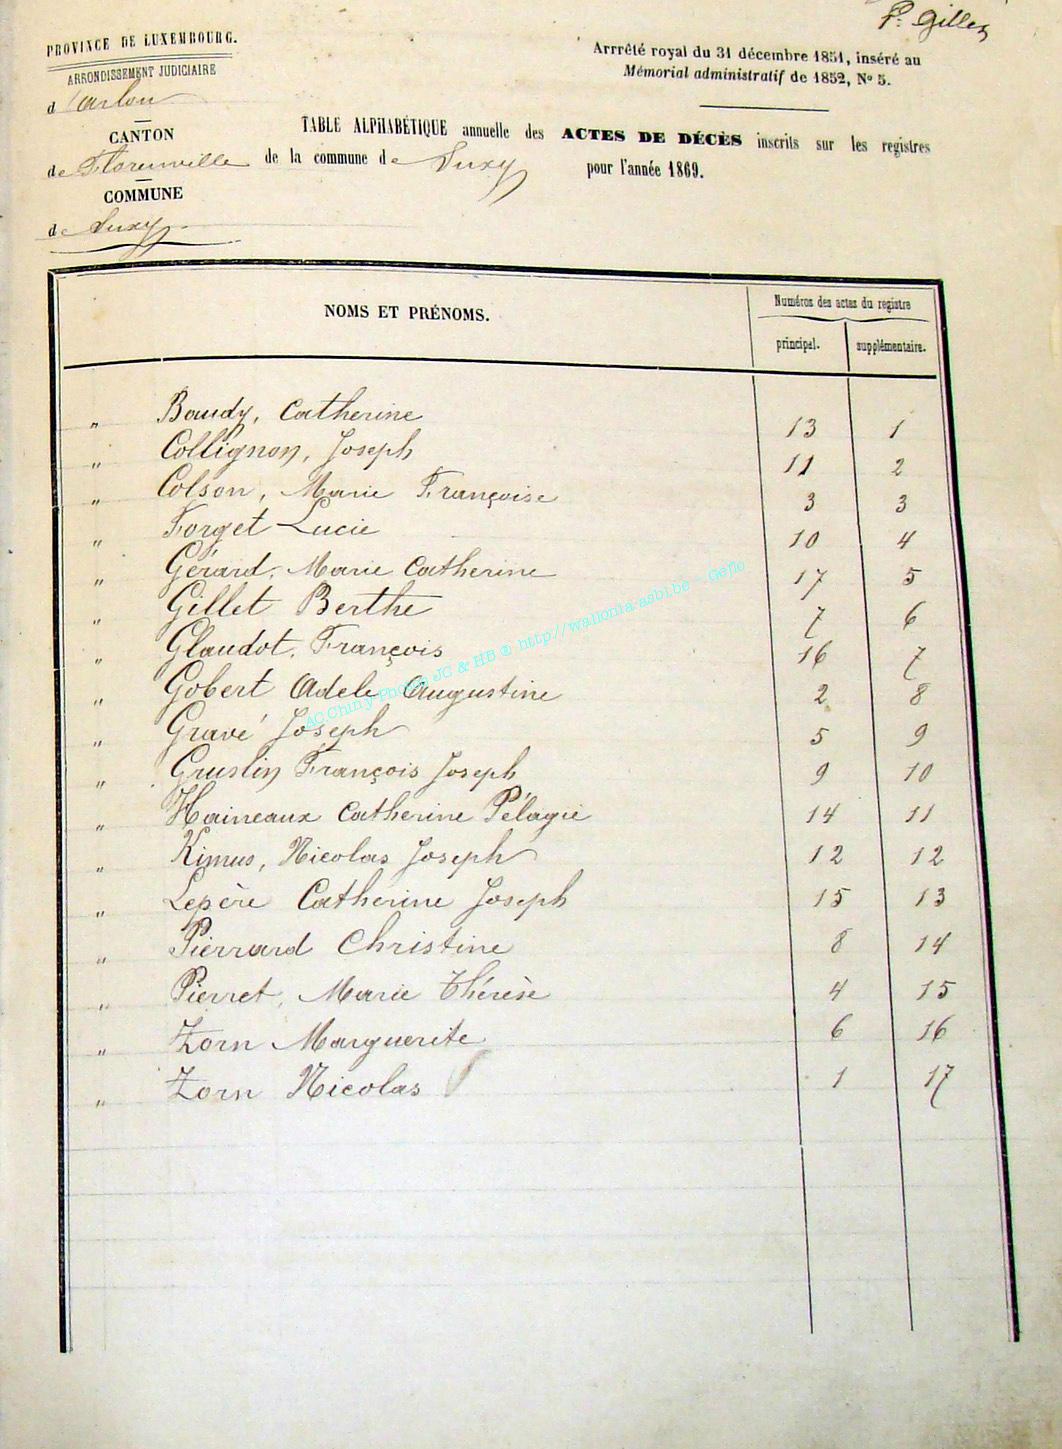 P. Gillet
PROVINCE DE LUXEMBOURG.
ARRONDISSEMENT JUDICIAIRE
d'arlon
CANTON
de Florenville
COMMUNE
de Suxy
Arrrêté royal du 31 décembre 1851, inséré au
Mémorial administratif de 1852, No 5.
TABLE ALPHABÉTIQUE annuelle des ACTES DE DÉCÈS inscrits sur les registres
de la commune de Suxy pour l'année 1869.
NOMS ET PRÉNOMS.
Numéros des actes du registre
principal. supplémentaire.
" Baudy, Catherine 13 1
" Collignon, Joseph 11 2
" Colson, Marie Françoise 3 3
" Forget Lucie 10 4
" Gérard, Marie Catherine 17 5
" Gillet Berthe 7 6
" Glaudot, François 16 7
" Gobert Adele Augustine 2 8
" Gravé Joseph 5 9
" Gruslin François Joseph 9 10
" Haineaux Catherine Pélagie 14 11
" Kimus, Nicolas Joseph 12 12
" Lepère Catherine Joseph 15 13
" Pierrard Christine 8 14
" Pierret, Marie Thérèse 4 15
" Zorn Marguerite 6 16
" Zorn Nicolas 1 17
AC Chiny Photos JC & HB ® http://wallonia-asbl.be - Geflo